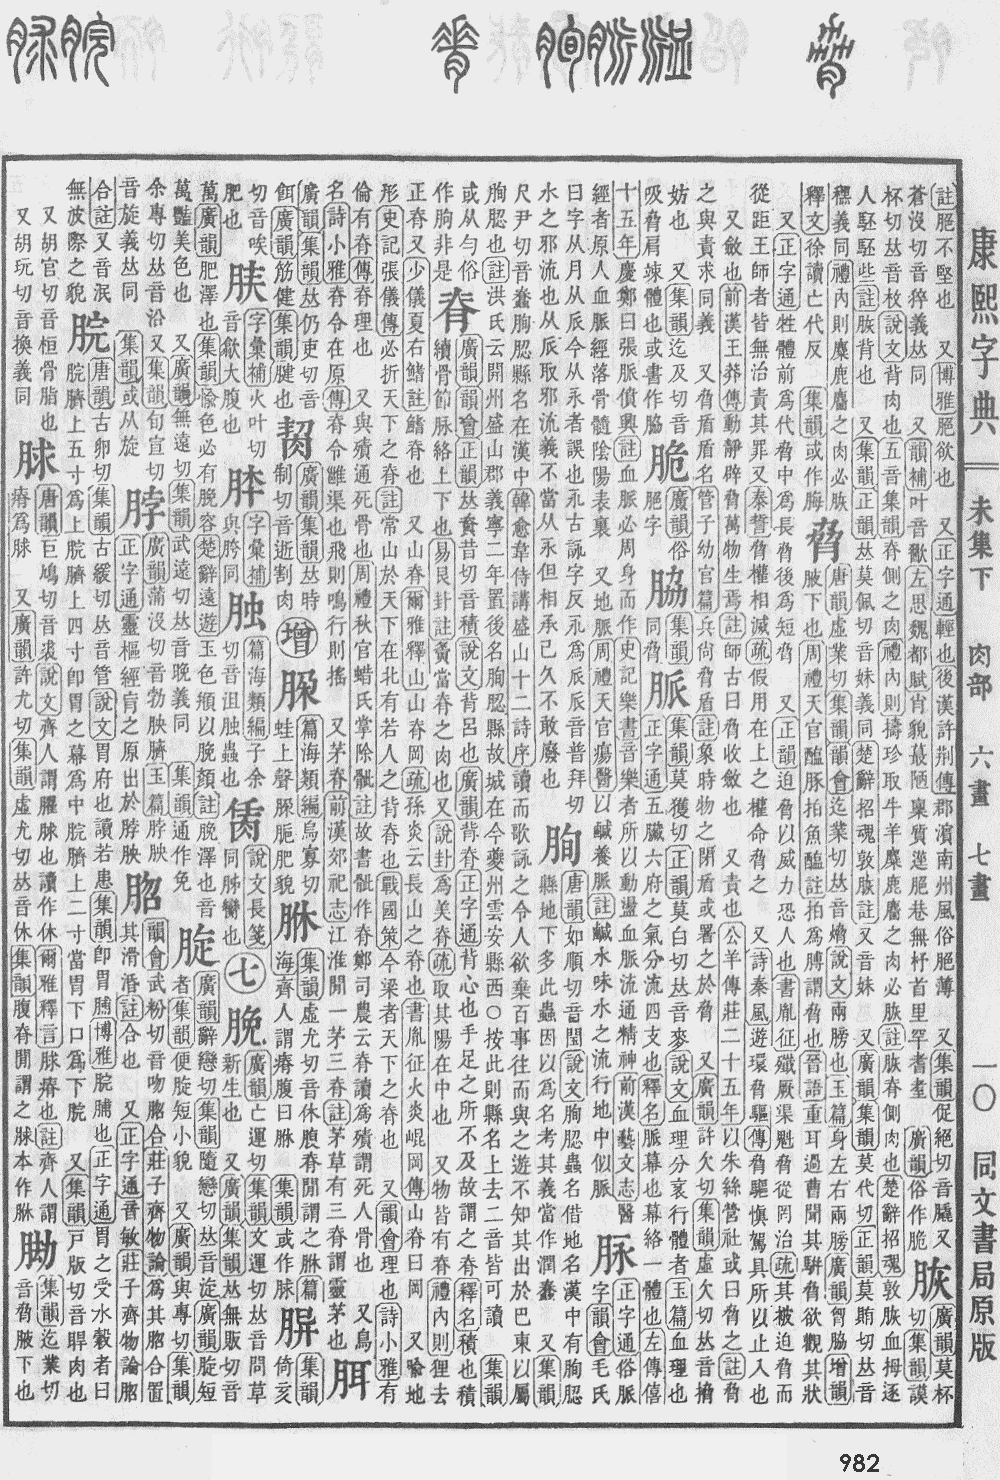 康熙字典 未集下 肉部 六畫 七畫 一〇 同文書局原版
註脃不堅也 又博雅脃欲也 又正字通輕也後漢許荆傳郡濱南州風俗脃薄 又集韻促絕切音膬又 脄 廣韻莫杯
蒼沒切音猝義𠀤同 又韻補叶音歠左思魏都賦宵貌蕞陋稟質遳脃巷無杼首里罕耆耋 廣韻俗作脆 切集韻謨
杯切𠀤音枚說文背肉也五音集韻脊側之肉禮內則擣珍取牛羊麋鹿麕之肉必脄註脄脊側肉也楚辭招魂敦脄血拇逐
人駓駓些註脄背也 又集韻正韻𠀤莫佩切音妹義同楚辭招魂敦脄註又音妹 又廣韻集韻莫代切正韻莫賄切𠀤音
義同禮內則麋鹿麕之肉必脄 脅 唐韻虛業切集韻韻會迄業切𠀤音熁說文兩膀也玉篇身左右兩膀廣韻胷脇增韻
釋文徐讀亡代反 集韻或作脢 腋下也周禮天官醢豚拍魚醢註拍爲膊謂脅也晉語重耳過曹聞其騈脅欲觀其狀
又正字通牲體前爲代脅中爲長脅後爲短脅 又正韻迫脅以威力恐人也書胤征殲厥渠魁脅從罔治疏其被迫脅而
從距王師者皆無治責其罪又泰誓脅權相滅疏假用在上之權命脅之 又詩秦風遊環脅驅傳脅驅愼駕具所以止入也
又斂也前漢王莽傳動靜辟脅萬物生焉註師古曰脅收斂也 又責也公羊傳莊二十五年以朱絲營社或曰脅之註脅
之與責求同義 又脅盾盾名管子幼官篇兵尙脅盾註象時物之閉盾或署之於脅 又廣韻許欠切集韻虛欠切𠀤音
妨也 又集韻迄及切音 脆 廣韻俗 脇 集韻 脈 集韻莫獲切正韻莫白切𠀤音麥說文血理分衺行體者玉篇血理也
吸脅肩竦體也或書作脇 脃字 同脅 正字通五臟六府之氣分流四支也釋名脈幕也幕絡一體也左傳僖
十五年慶鄭曰張脈僨興註血脈必周身而作史記樂書音樂者所以動盪血脈流通精神前漢藝文志醫 脉 正字通俗脈
經者原人血脈經落骨髓陰陽表裏 又地脈周禮天官瘍醫以鹹養脈註鹹水味水之流行地中似脈 字韻會毛氏
曰字从月从𠂢今从永者誤也永古詠字反永爲𠂢𠂢音普拜切 朐 唐韻如順切音閏說文朐䏰蟲名借地名漢中有朐䏰
水之邪流也从𠂢取邪流義不當从永但相承已久不敢廢也 縣地下多此蟲因以爲名考其義當作潤蠢 又集韻
尺尹切音蠢朐䏰縣名在漢中韓愈韋侍講盛山十二詩序讀而歌詠之令人欲棄百事往而與之遊不知其出於巴東以屬
朐䏰也註洪氏云開州盛山郡義寧二年置後名朐䏰縣故城在今夔州雲安縣西○按此則縣名上去二音皆可讀 集韻
或从勻俗 脊 廣韻韻會正韻𠀤資昔切音積說文背呂也廣韻背脊正字通背心也手足之所不及故謂之脊釋名積也積
作朐非是 續骨節脈絡上下也易艮卦註當脊之肉也又說卦爲美脊疏取其陽在中也 又物皆有脊禮內則狸去
正脊又少儀夏右鰭註鰭脊也 又山脊爾雅釋山山脊岡疏孫炎云長山之脊也書胤征火炎崐岡傳山脊曰岡 又喩地
形史記張儀傳必折天下之脊註常山於天下在北有若人之背脊也戰國策今梁者天下之脊也 又韻會理也詩小雅有
倫有脊傳脊理也 又與殨通死骨也周禮秋官蜡氏掌除骴註故書骴作脊鄭司農云脊讀爲殨謂死人骨也 又鳥
名詩小雅脊令在原傳脊令雝渠也飛則鳴行則搖 又茅脊前漢郊祀志江淮閒一茅三脊註茅草有三脊謂靈茅也 胹
廣韻集韻𠀤仍吏切音 廣韻集韻𠀤時 增 篇海類編烏寡切 集韻虛尤切音休腹脊閒謂之脙 集韻
餌廣韻筋健集韻腱也 制切音逝割肉 蛙上聲 肥貌 海齊人謂瘠腹曰脙 集韻或作脙 倚亥
切音唉 肰 字彙補火叶切 字彙補 篇海類編子余 說文長箋 七 脕 廣韻亡運切集韻文運切𠀤音問草
肥也 音歙大腹也 與胯同 切音沮 蟲也 同肠臠也 新生也 又廣韻集韻𠀤無販切音
萬廣韻肥澤也集韻愉色必有脕容楚辭遠遊玉色頩以脕顏註脕澤也音 廣韻辭戀切集韻隨戀切𠀤音淀廣韻腚短
萬豔美色也 又廣韻無遠切集韻武遠切𠀤音晚義同 集韻通作免 者集韻便腚短小貌 又廣韻與專切集韻
余專切𠀤音沿又集韻旬宣切 脖 廣韻蒲沒切音勃脖胦臍玉篇脖胦 韻會武粉切音吻脗合莊子齊物論爲其脗合置
音旋義𠀤同 集韻或从旋 正字通靈樞經肓之原出於脖胦 其滑涽註合也 又正字通音敏莊子齊物論脗
合註又音泯 脘 唐韻古卵切集韻古緩切𠀤音管說文胃府也讀若患集韻卽胃脯博雅脘脯也正字通胃之受水穀者曰
無波際之貌 脘臍上五寸爲上脘臍上四寸卽胃之幕爲中脘臍上二寸當胃下口爲下脘 又集韻戸版切音睅肉也
又胡官切音桓骨脂也 脙 唐韻巨鳩切音裘說文齊人謂臞脙也讀作休爾雅釋言脙瘠也註齊人謂 集韻迄業切
又胡玩切音換義同 瘠爲脙 又廣韻許尤切集韻虛尤切𠀤音休集韻腹脊閒謂之脙本作脉 音脅腋下也
982